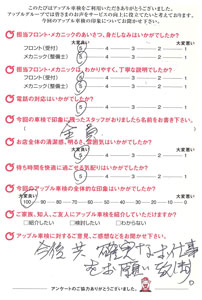 このたびはアップル車検をご利用いただきありがとうございました。
アップルグループでは皆さまのお声をサービスの向上に役立てたいと考えております。
今回のアップル車検の印象についてお聞かせください。
担当フロント・メカニックのあいさつ、身だしなみはいかがでしたか?
大変良い 大変悪い
フロント(受付) 5 4 3 2 1
メカニック(整備士) 5 4 3 2 1
担当フロント・メカニックは、わかりやすく、丁寧な説明でしたか?
大変良い 大変悪い
フロント(受付) 5 4 3 2 1
メカニック(整備士) 5 4 3 2 1
電話の対応はいかがでしたか?
大変良い 大変悪い
5 4 3 2 1
今回の車検で印象に残ったスタッフがありましたら名前をお書き下さい。
全員
お店全体の清潔感、明るさ、雰囲気はいかがでしたか?
大変良い 大変悪い
5 4 3 2 1
待ち時間を快適に過ごせる気配りはいかがでしたか?
大変良い 大変悪い
5 4 3 2 1
今回のアップル車検の全体的な印象はいかがでしたか?
大変良い 大変悪い
100 90 80 70 60 50 40 30 20 10 0
ご家族、知人、友人にアップル車検を紹介していただけますか?
紹介したい 検討したい わからない
車検に対するご意見、ご感想などをお聞かせ下さい。
今後共 確実なお仕事
をお願い致し
アンケートのご協力ありがとうございました。